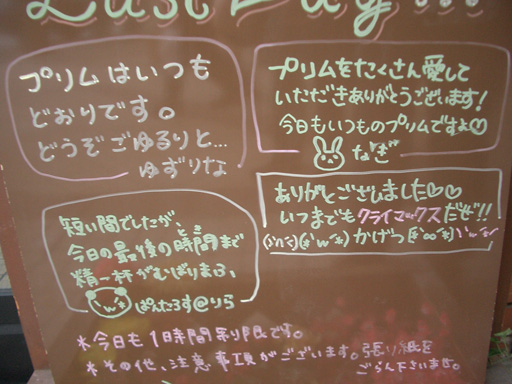 Last Day!!!
プリムはいつも
どおりです。
どうぞごゆるりと…
ゆずりな
プリムをたくさん愛して
いただきありがとうございます!
今日もいつものプリムですよ♡
なぎ
ありがとございました♡♡
いつまでもクライマックスだぜ!!
かげつ
短い間でしたが、
今日の最後の時間まで
精一杯がむばりまふ、
ぱんたろす@りら
*今日も1時間乗り限です。
*その他、注意事項がございます。張り紙を
ごらん下さいませ。